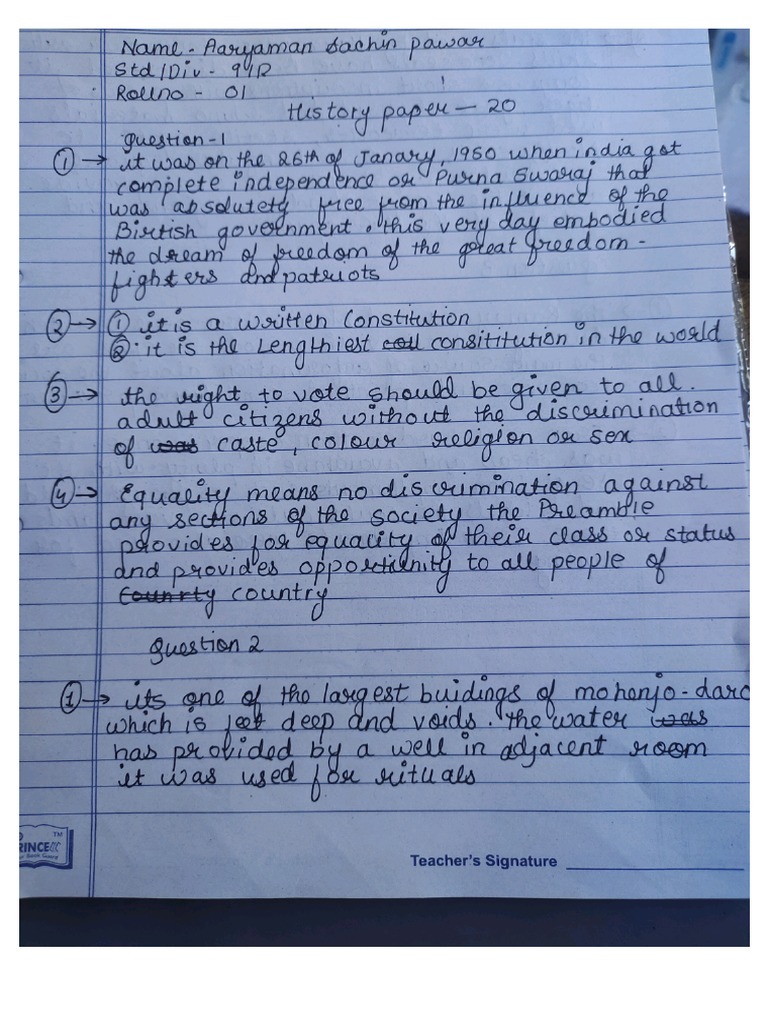 Name - Aaryaman Sachin pawar
Std/Div - 9/12
Rollno - 01
History paper - 20
Question-1
① → it was on the 26th of Janary, 1950 when india got
complete independence or Purna Swaraj that
was absolutety free from the influence of the
Birtish government. this very day embodied
the dream of freedom of the great freedom-
fighters and patriots
② → ① it is a written Constitution
②. it is the Lengthiest consititution in the world
③ → the right to vote should be given to all.
adult citizens without the discrimination
of was caste, colour religion or sex
④ → Equality means no discrimination against
any sections of the society the Preamble
provides for equality of their class or status
and provides opportunity to all people of
Counrty country
Question 2
① → its one of the largest buidings of mohenjo-daro
which is deep and voids. the water was
has provided by a well in adjacent room
it was used for rituals
TM
RINCE
Teacher's Signature